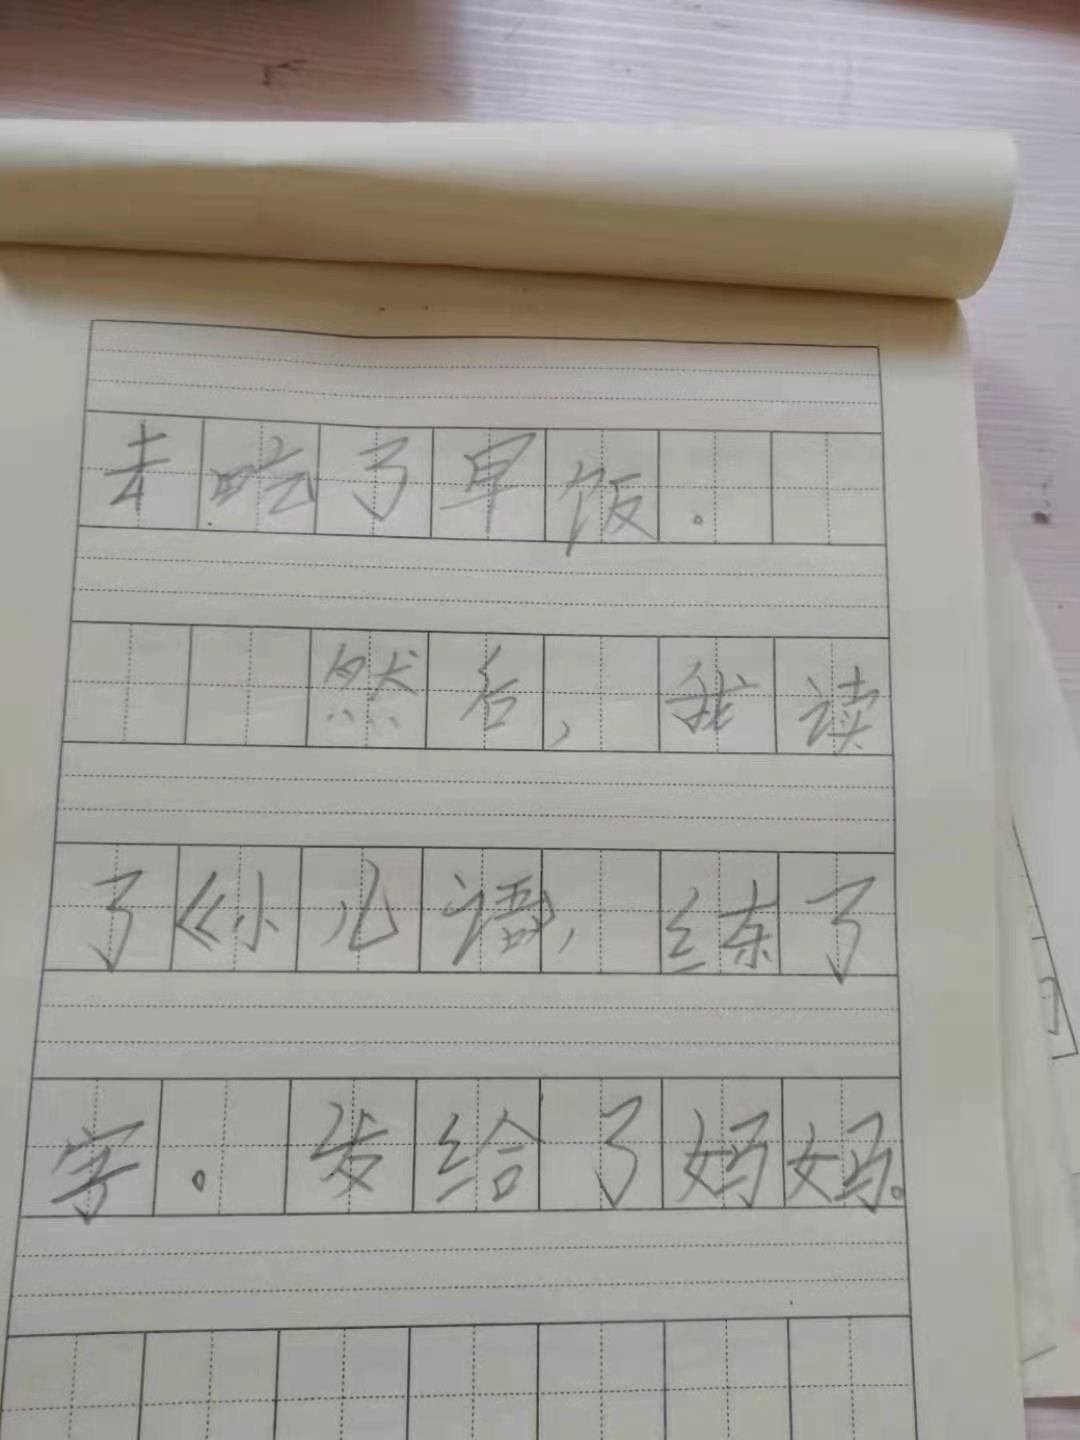 去吃了早饭。
然后,我读
了《小儿语》,练了
字。发给了妈妈。